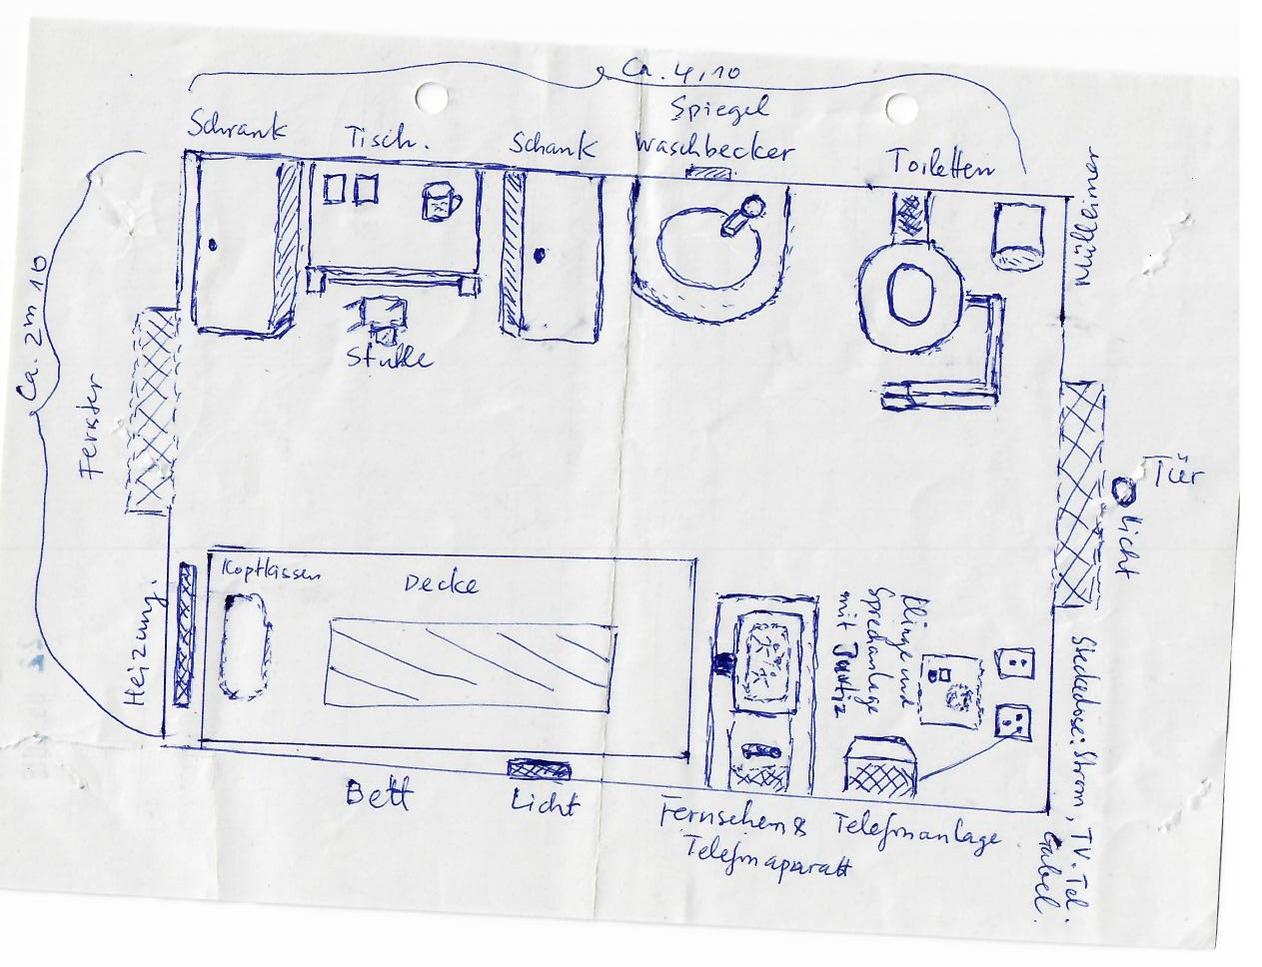 Ca. 4,10
Spiegel
Schrank
Tisch.
Schank
Waschbecker
Toiletten
Mülleimer
Ca. 2m10
Fenster
Stuhle
Tür
Licht
Kopfkissen
Decke
Heizung.
Klingel und
Sprechanlage
mit Justiz
Steckedose: Strom, TV. Tel.
Gabel.
Bett
Licht
Fernsehen &
Telefonaparatt
Telefonanlage